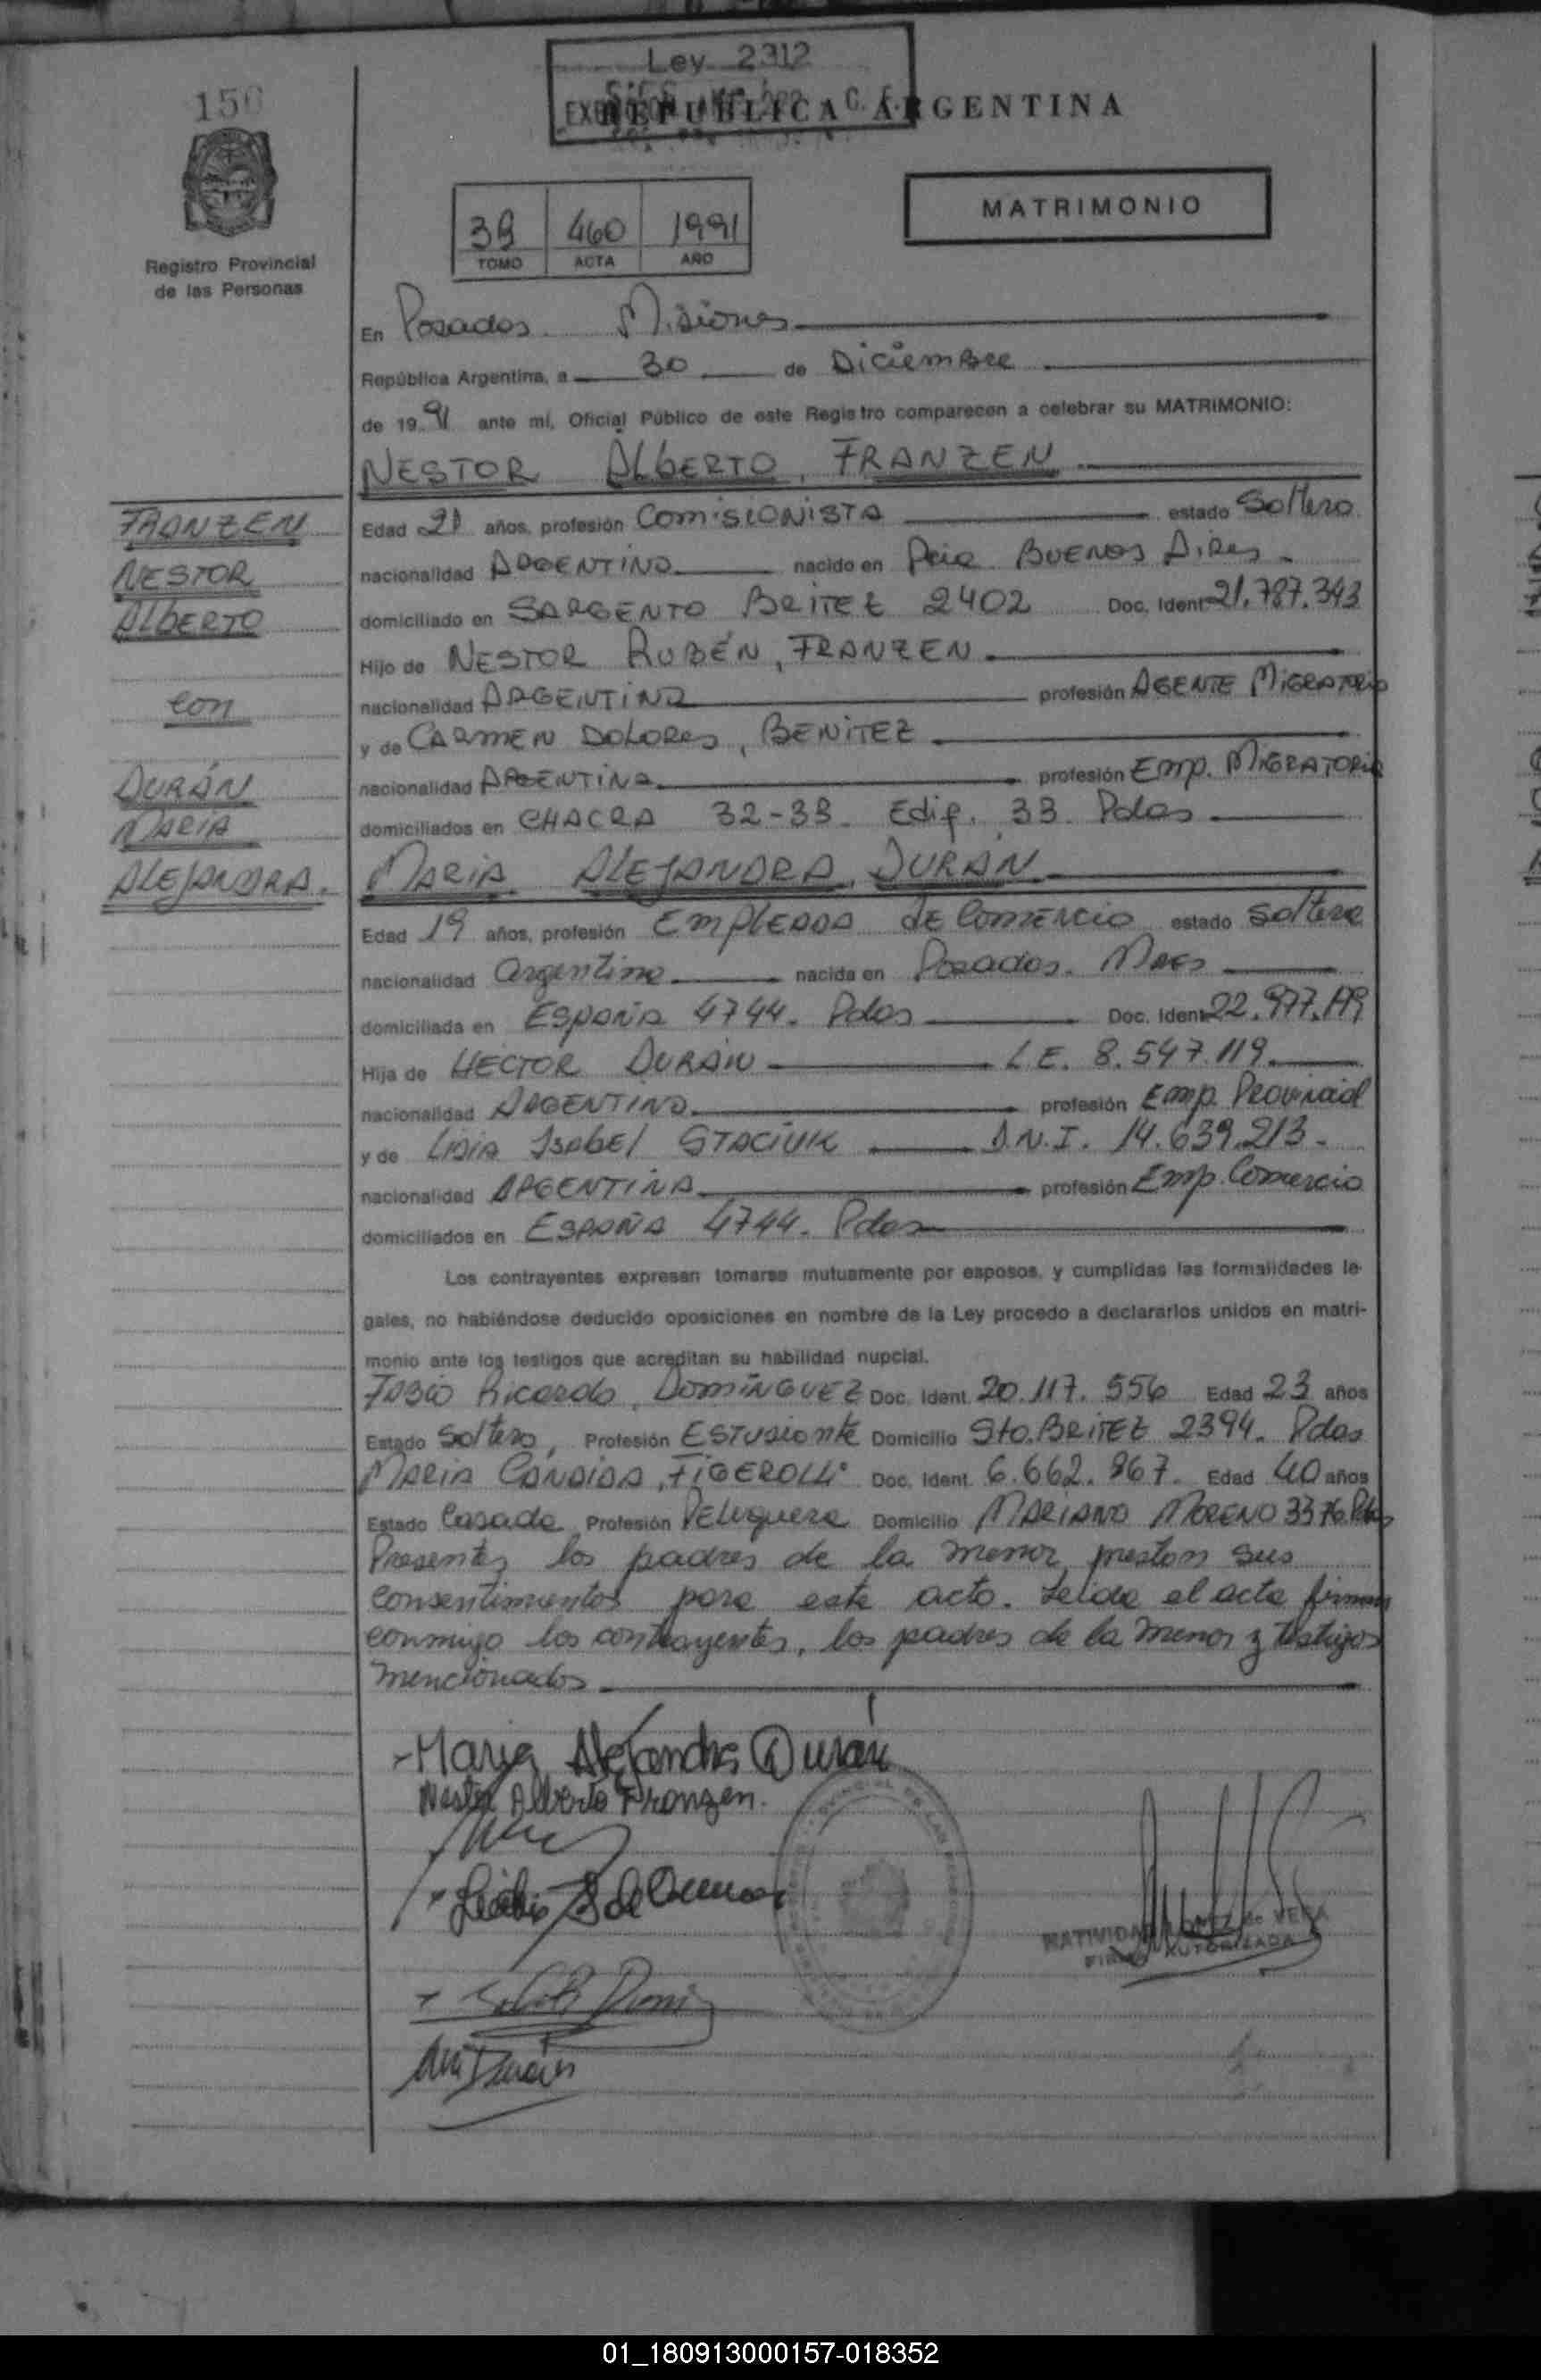 150
Ley 2312
REPUBLICA ARGENTINA
MATRIMONIO
39 460 1991
TOMO ACTA AÑO
Registro Provincial
de las Personas
En Posadas. Misiones
República Argentina, a 30 de Diciembre
de 1991 ante mí, Oficial Público de este Registro comparecen a celebrar su MATRIMONIO:
NESTOR ALBERTO, FRANZEN
FRANZEN
NESTOR
ALBERTO
con
DURÁN
MARIA
ALEJANDRA.
Edad 21 años, profesión Comisionista estado Soltero
nacionalidad ARGENTINA nacido en Pcia Buenos Aires
domiciliado en SARGENTO BRITEZ 2402 Doc. Ident 21.787.343
Hijo de NESTOR RUBÉN, FRANZEN
nacionalidad ARGENTINA profesión AGENTE MIGRATORIO
y de CARMEN DOLORES, BENITEZ
nacionalidad ARGENTINA profesión Emp. MIGRATORIA
domiciliados en CHACRA 32-33. Edif. 33. Pdas
MARIA ALEJANDRA, DURAN
Edad 19 años, profesión EMPLEADA DE COMERCIO estado soltera
nacionalidad argentina nacida en Posadas. Mnes
domiciliada en ESPAÑA 4744. Pdas Doc. Ident 22.977.119
Hija de HÉCTOR DURÁN L.E. 8.547.119
nacionalidad ARGENTINA profesión Emp. Provincial
y de LIDIA ISABEL STACIUK D.N.I. 14.639.213.
nacionalidad ARGENTINA profesión Emp. Comercio
domiciliados en ESPAÑA 4744. Pdas
Los contrayentes expresan tomarse mutuamente por esposos, y cumplidas las formalidades le-
gales, no habiéndose deducido oposiciones en nombre de la Ley procedo a declararlos unidos en matri-
monio ante los testigos que acreditan su habilidad nupcial.
FABIO Ricardo, DOMÍNGUEZ Doc. Ident. 20.117.556 Edad 23 años
Estado Soltero, Profesión Estudiante Domicilio Sto. BRITEZ 2394. Pdas
MARIA CÁNDIDA, FIGEROLLI Doc. Ident. 6.662.867. Edad 40 años
Estado Casada Profesión Peluquera Domicilio MARIANO MORENO 3376. Pdas
Presentes los padres de la menor prestan sus
consentimientos para este acto. Leida el acta firman
conmigo los contrayentes, los padres de la menor y testigos
mencionados
Maria Alejandra Durán
Nestor Alberto Franzen.
NATIVIDAD LOPEZ de VEGA
FIRMA AUTORIZADA
01_180913000157-018352